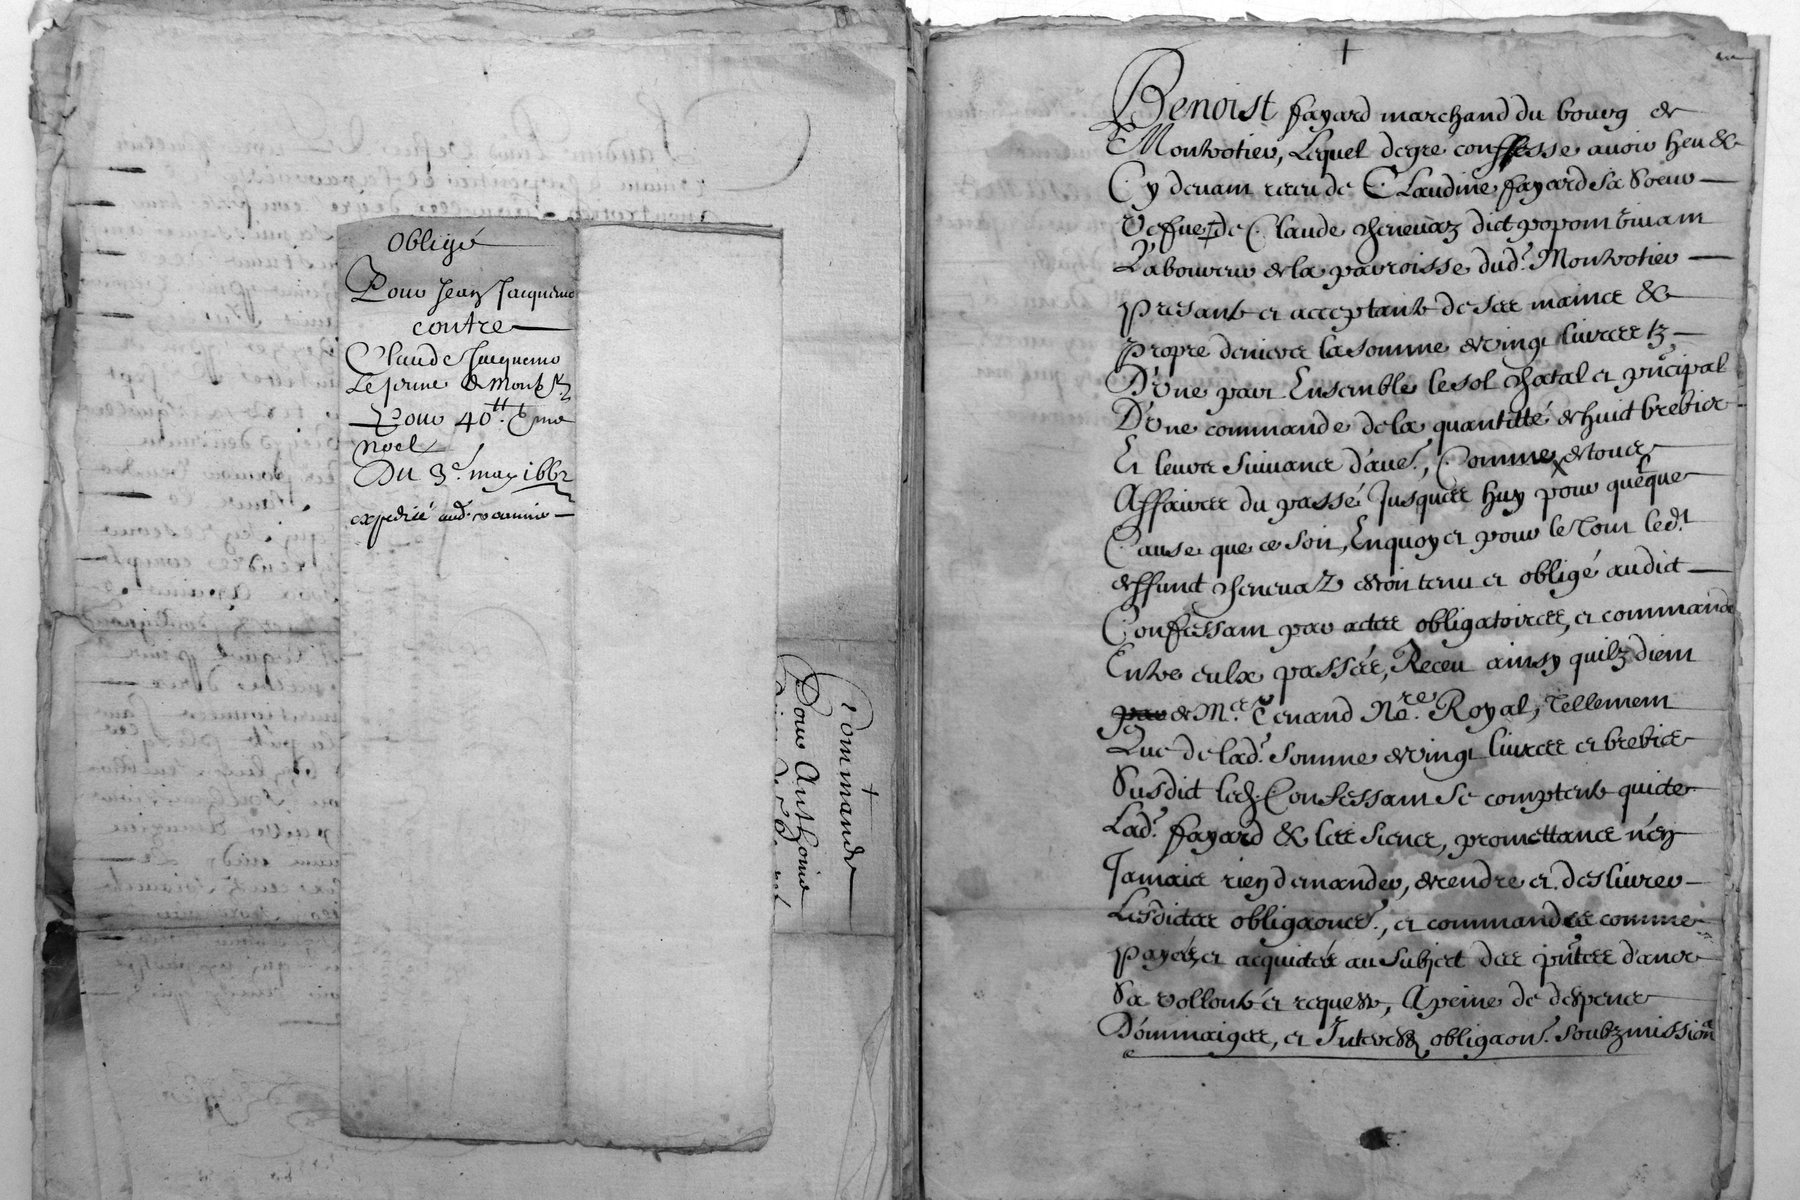 Obligé
Pour Jean Jacquemo
contre
Claude Jacquemo
Le jeune de Mont
Pour 40.tt
Noel
Du 3e. may 1662
expedié aud.
Commande
Pour Anthoine
Benoist fayard marchand du bourg de
Montrotier, Lequel degre confesse avoir heu &
Cy devant receu de Claudine fayard sa soeur
vefve de Claude cheneuaz dict popom vivant
Laboureur de la parroisse dud. Montrotier
presante et acceptante de ses mains &
propre deniers la somme de vingt livres tz
D'une part Ensemble le sol chatal et principal
D'une commande de la quantitté de huict brebis
Et leurs suivance d'ave., Comme de tous
Affaires du passé Jusques huy pour quelque
Cause que ce soit, Enquoy et pour le tout led.t
deffunct cheneuaz estoit tenu et obligé audict
Confessant par actes obligatoires, et commande
Entre eulx passés, Receu ainsy quilz dient
par de M.e Terand No.re Royal, Tellement
Que de lad. somme de vingt livres et brebis
Susdict led. Confessant se comptente quicte
Lad. fayard & les siens, promettance n'en
Jamais rien demander, de rendre et deslivrer
Lesdictes obligaons., et commandes comme
payés, et acquictés au subject des pntes d'ance
Sa vollonté et requeste, A peine de despens
Dommaiges, et Interestz obligaon. soubzmission